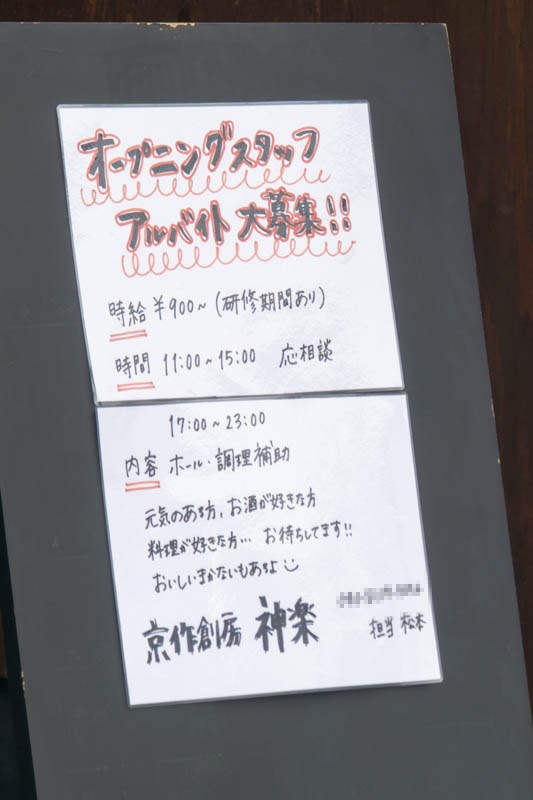 オープニングスタッフ
アルバイト大募集!!
時給 ¥900~(研修期間あり)
時間 11:00~15:00 応相談
17:00~23:00
内容 ホール・調理補助
元気のある方、お酒が好きな方
料理が好きな方… お待ちしてます!!
おいしいまかないもあるよ
京作創房 神楽
担当 松本